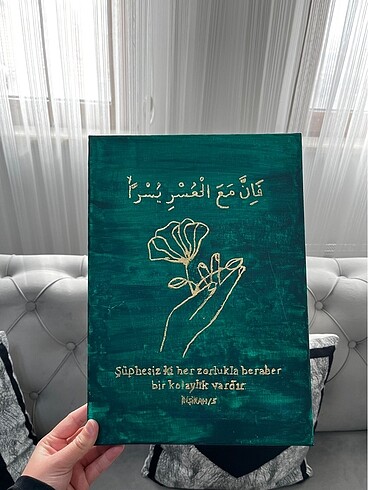 فَاِنَّ مَعَ الْعُسْرِ يُسْرًاۙ
Şüphesiz ki her zorlukla beraber
bir kolaylık vardır.
İNŞİRAH/5